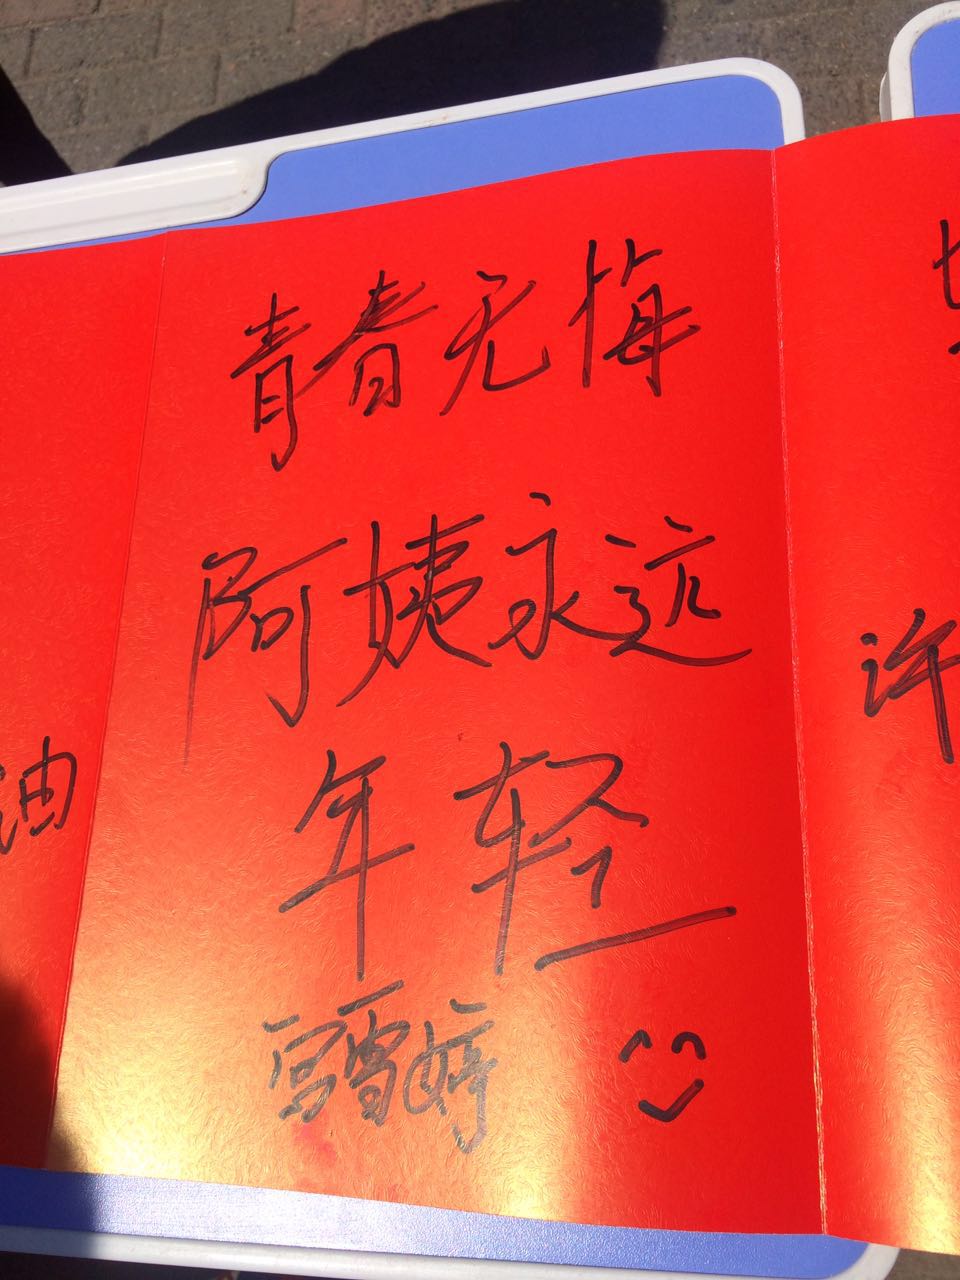 青春无悔
阿姨永远
年轻
雪婷
油
许